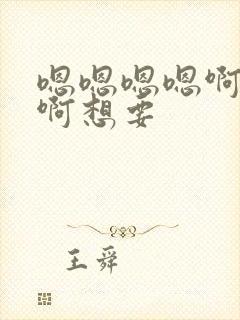 嗯嗯嗯嗯啊
啊想要
王舜